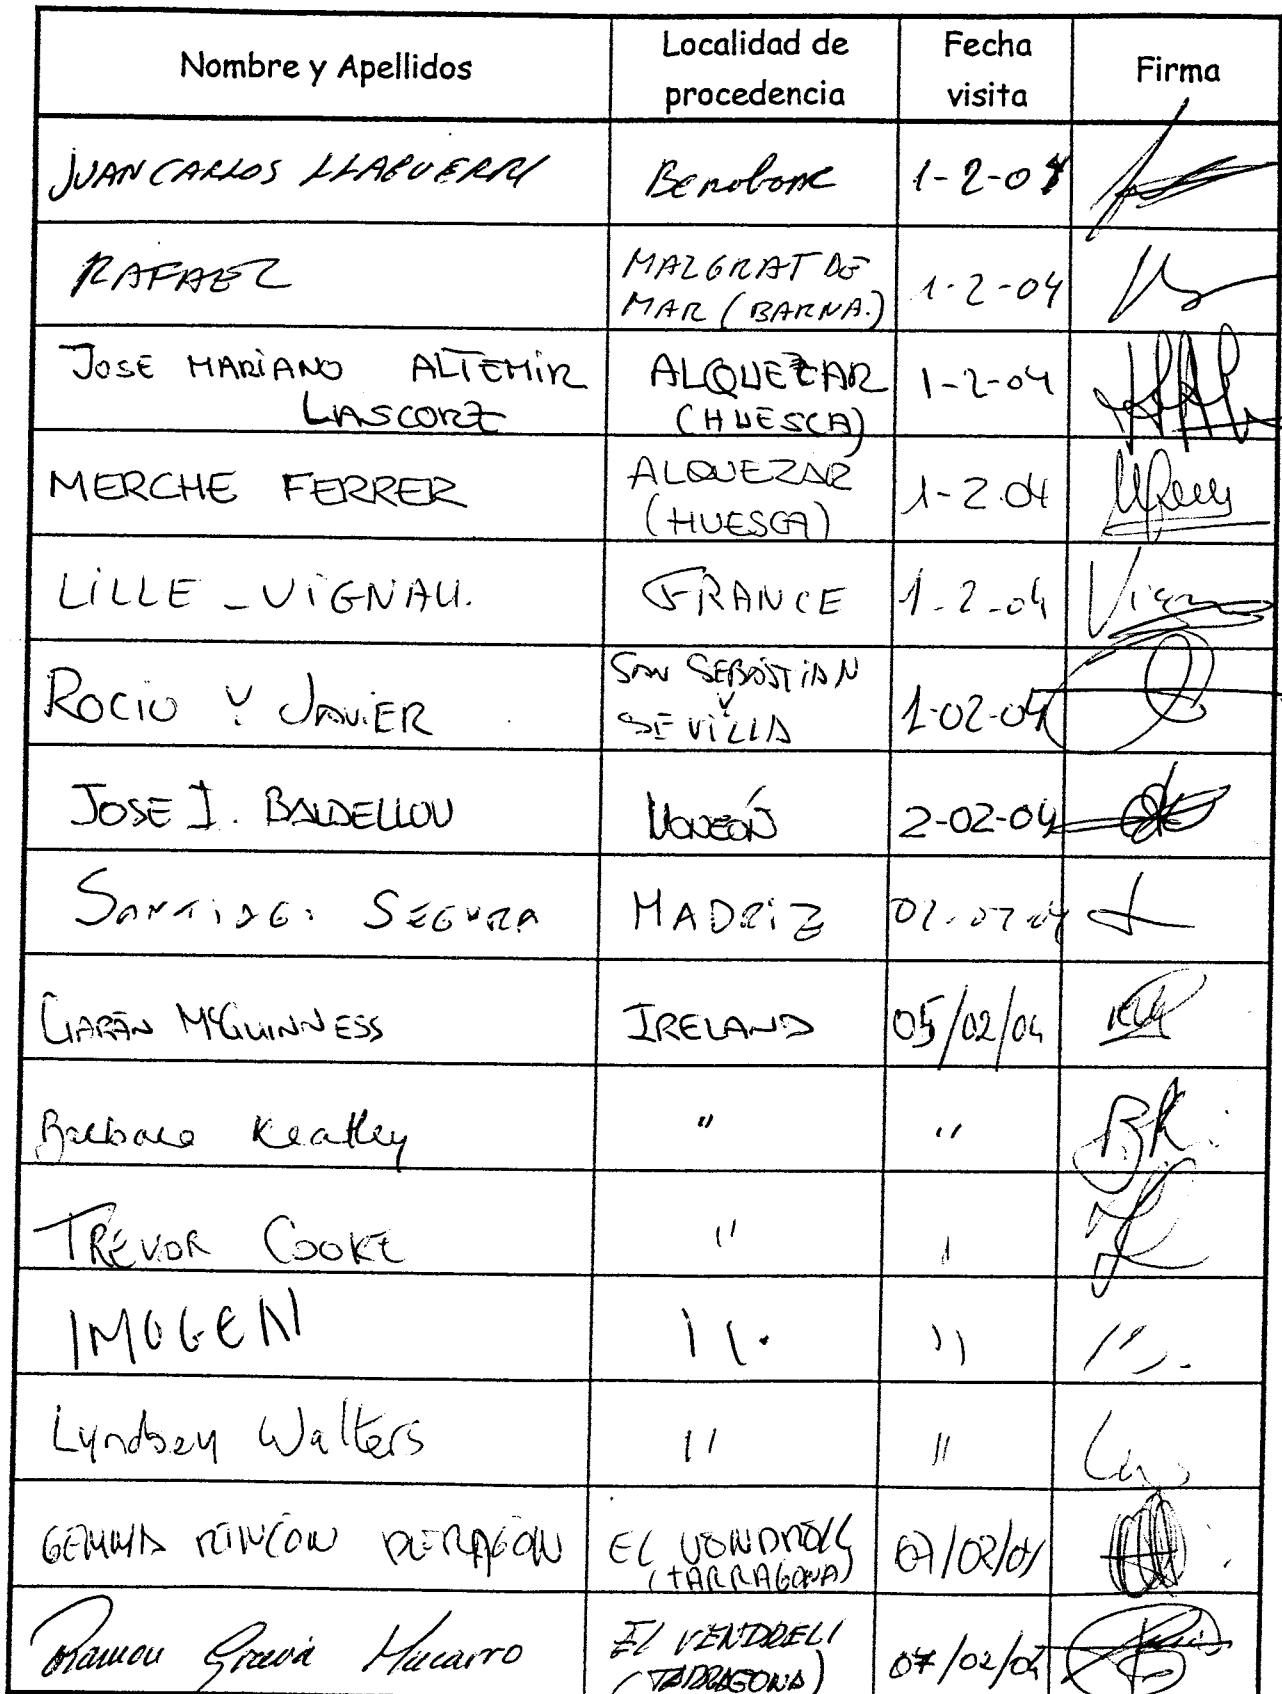 Nombre y Apellidos Localidad de procedencia Fecha visita Firma
JUAN CARLOS LLAGUERRI Benabarre 1-2-04
RAFAEL MALGRAT DE MAR (BARNA.) 1-2-04
JOSE MARIANO ALTEMIR LASCORZ ALQUEZAR (HUESCA) 1-2-04
MERCHE FERRER ALQUEZAR (HUESCA) 1-2.04
LiLLE - ViGNAU. FRANCE 1-2-04
ROCIO Y JAVIER SAN SEBASTIAN Y SEVILLA 1-02-04
JOSE I. BALDELLOU MONZÓN 2-02-04
SANTIAGO SEGURA MADRIZ 02-02-04
CIARÁN McGUINNESS IRELAND 05/02/04
Barbara Keatley " " BK
TREVOR COOKE " "
IMOGEN " " "
Lyndsay Walters " "
GEMMA RINCÓN EL VENDRELL (TARRAGONA) 07/02/04
Ramon Macarro El VENDRELL (TARRAGONA) 07/02/04